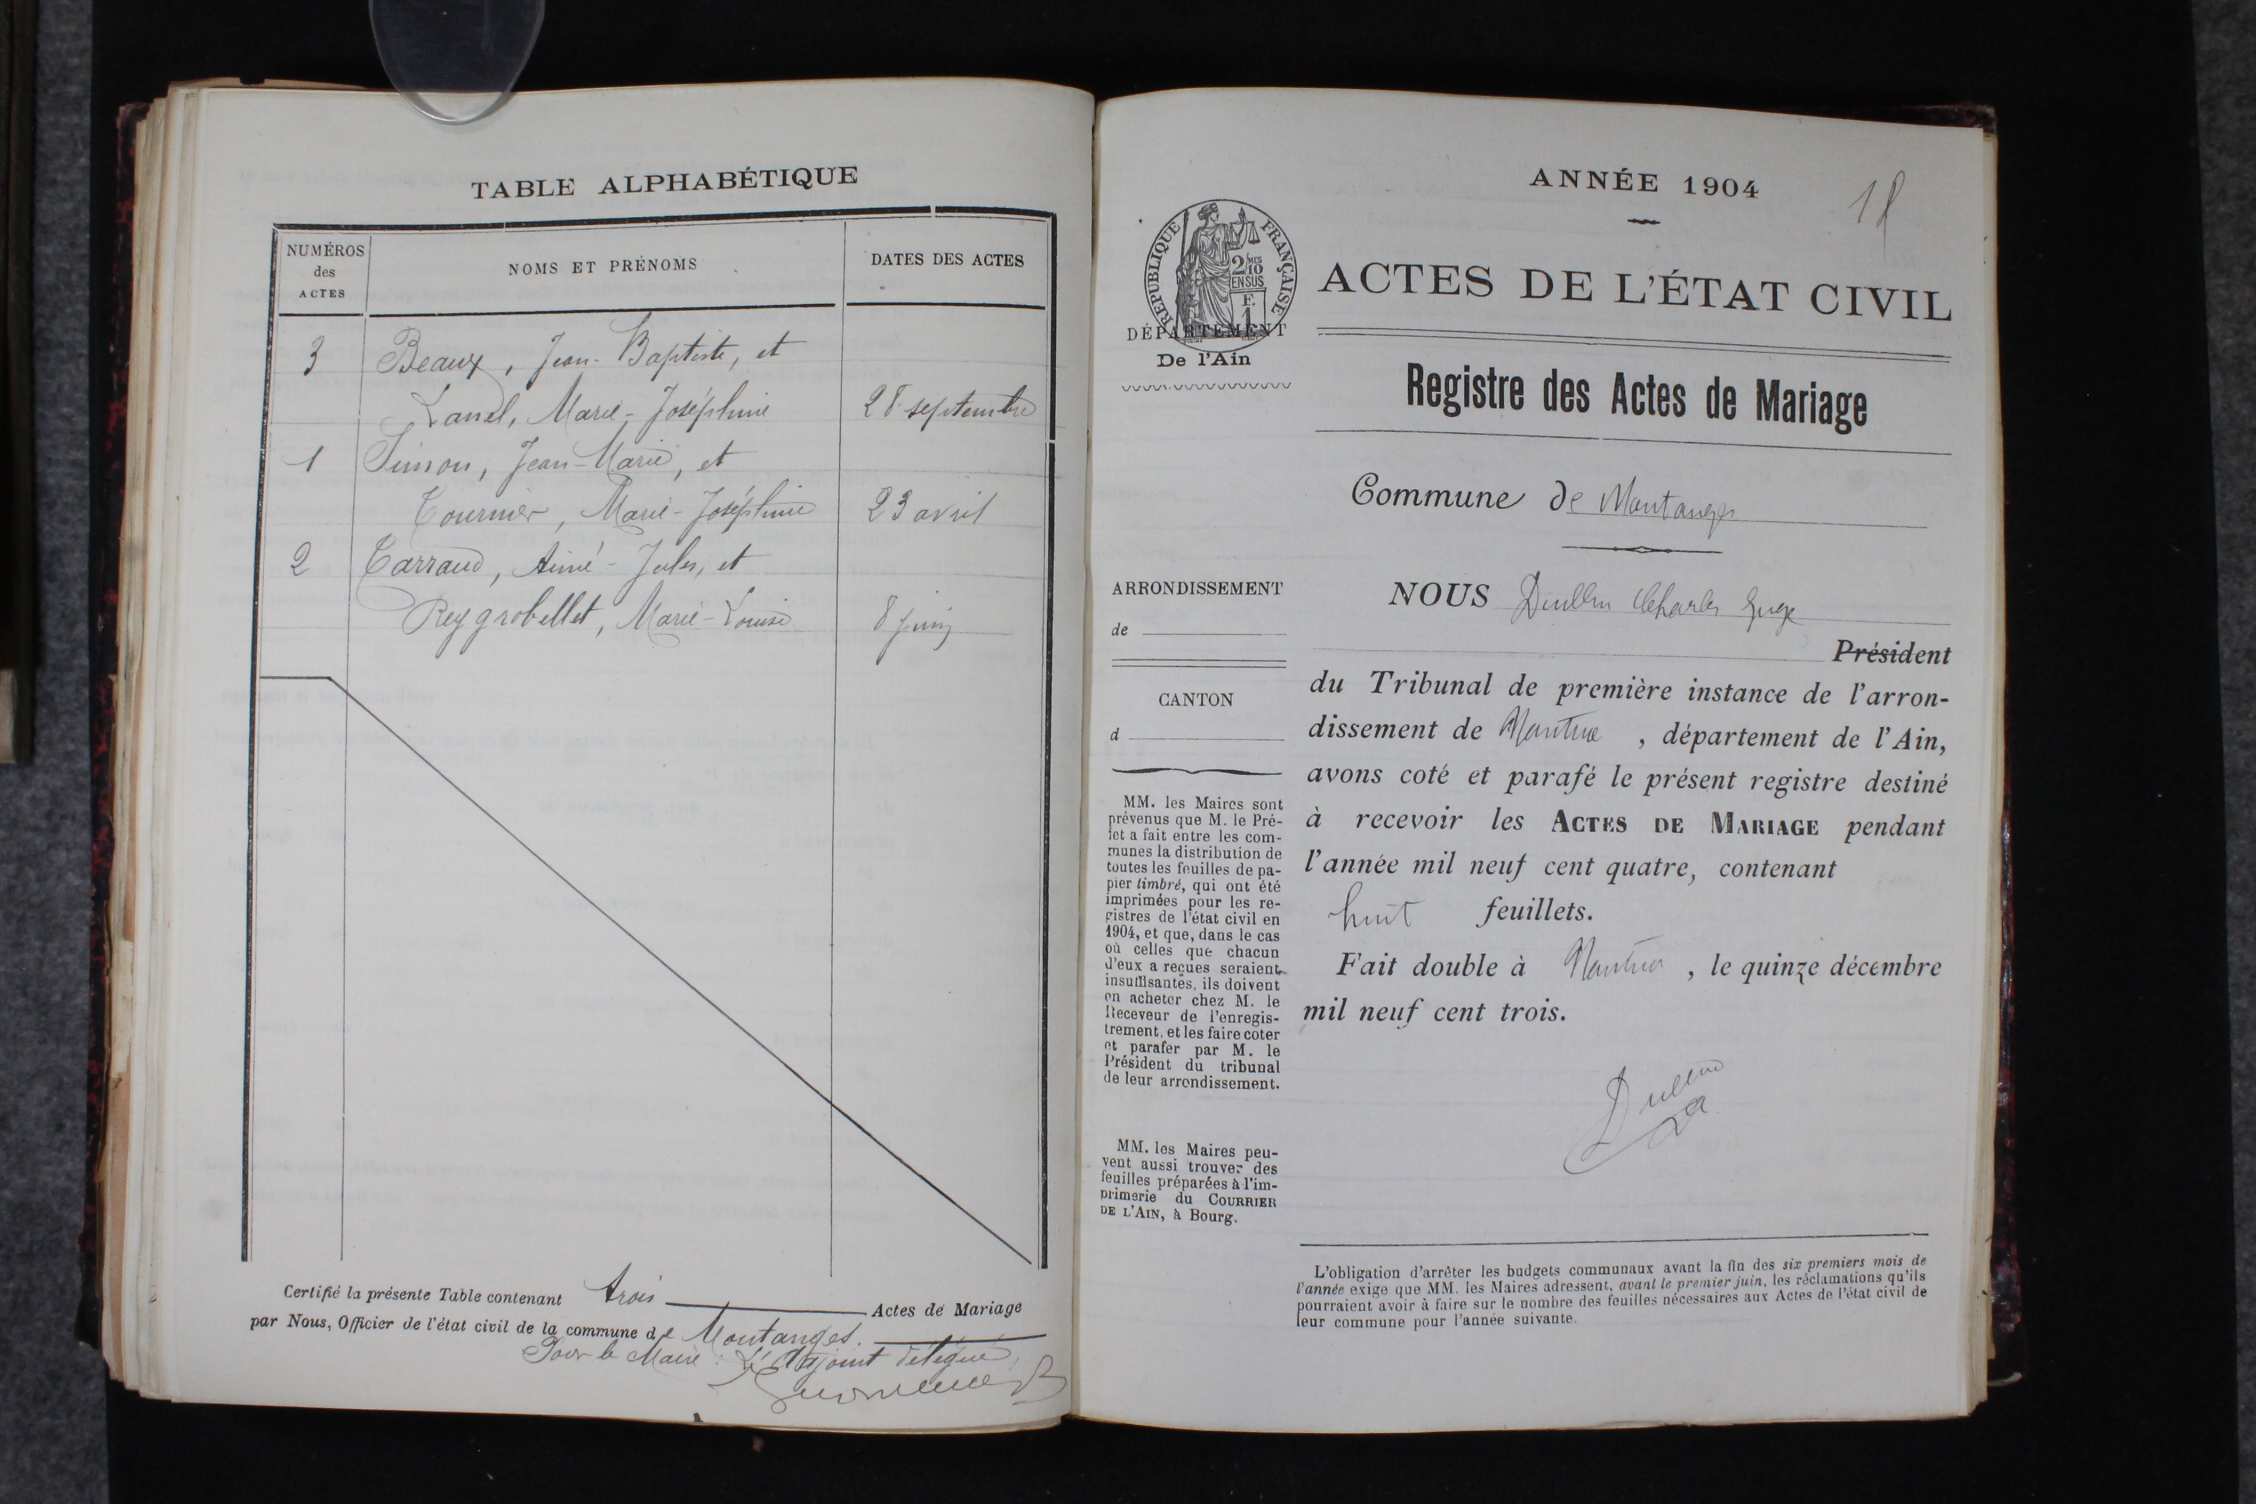 TABLE ALPHABÉTIQUE
NUMÉROS des ACTES
NOMS ET PRÉNOMS
DATES DES ACTES
3 Beaux, Jean-Baptiste, et
Lanel, Marie-Joséphine 28 septembre
1 Simon, Jean-Marie, et
Tournier, Marie-Joséphine 23 avril
2 Tarraud, Aimé-Jules, et
Reygrobellet, Marie-Louise 8 juin
Certifié la présente Table contenant trois Actes de Mariage
par Nous, Officier de l'état civil de la commune de Montanges.
Pour le Maire : L'Adjoint délégué
ANNÉE 1904
RÉPUBLIQUE FRANÇAISE
2/10 MES
EN SUS
F.
1
DÉPARTEMENT
De l'Ain
ACTES DE L'ÉTAT CIVIL
Registre des Actes de Mariage
Commune de Montanges
ARRONDISSEMENT
de
CANTON
d
MM. les Maires sont
prévenus que M. le Pré-
fet a fait entre les com-
munes la distribution de
toutes les feuilles de pa-
pier timbré, qui ont été
imprimées pour les re-
gistres de l'état civil en
1904, et que, dans le cas
où celles que chacun
d'eux a reçues seraient
insuffisantes, ils doivent
en acheter chez M. le
Receveur de l'enregis-
trement, et les faire coter
et parafer par M. le
Président du tribunal
de leur arrondissement.
MM. les Maires peu-
vent aussi trouver des
feuilles préparées à l'im-
primerie du COURRIER
DE L'AIN, à Bourg.
NOUS Dullin Charles Juge
Président
du Tribunal de première instance de l'arron-
dissement de Nantua, département de l'Ain,
avons coté et parafé le présent registre destiné
à recevoir les ACTES DE MARIAGE pendant
l'année mil neuf cent quatre, contenant
huit feuillets.
Fait double à Nantua, le quinze décembre
mil neuf cent trois.
Dullin
L'obligation d'arrêter les budgets communaux avant la fin des six premiers mois de
l'année exige que MM. les Maires adressent, avant le premier juin, les réclamations qu'ils
pourraient avoir à faire sur le nombre des feuilles nécessaires aux Actes de l'état civil de
leur commune pour l'année suivante.